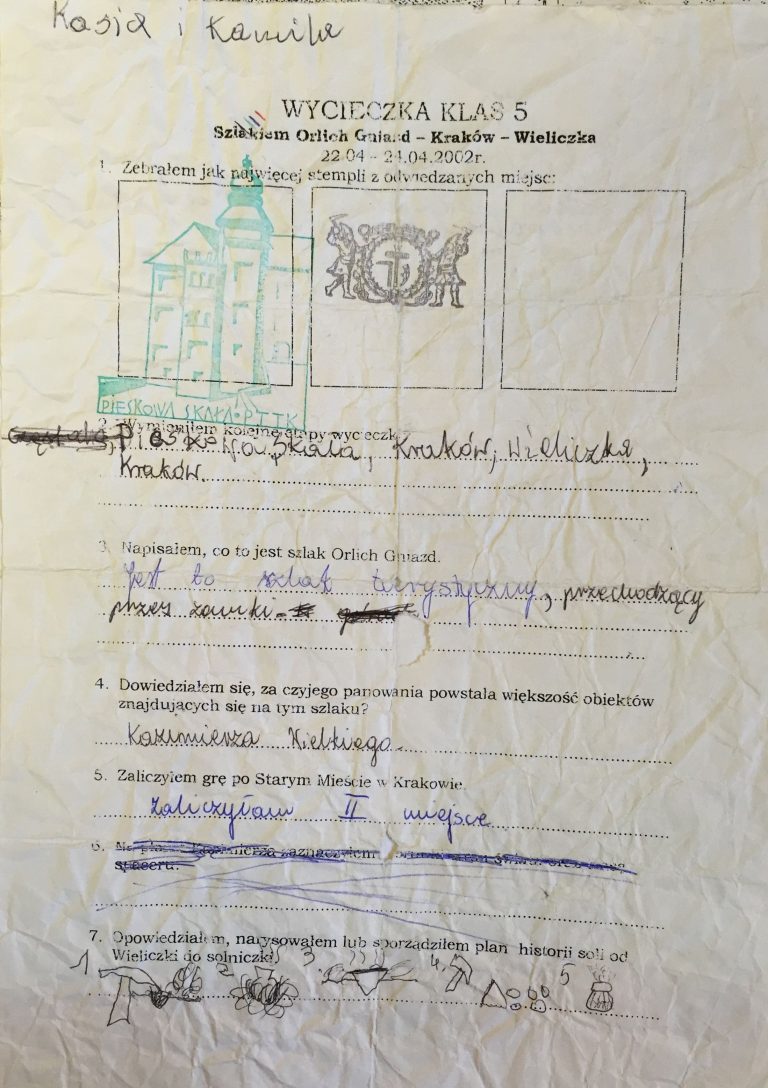 Kasia i Kamila
WYCIECZKA KLAS 5
Szlakiem Orlich Gniazd – Kraków – Wieliczka
22.04 – 24.04.2002r.
1. Zebrałem jak najwięcej stempli z odwiedzanych miejsc:
PIESKOWA SKAŁA • PTTK
2. Wymieniłem kolejne etapy wycieczki
Pieskowa Skała, Kraków, Wieliczka,
Kraków.
3. Napisałem, co to jest szlak Orlich Gniazd.
Jest to szlak turystyczny, przechodzący
przez zamki
4. Dowiedziałem się, za czyjego panowania powstała większość obiektów
znajdujących się na tym szlaku?
Kazimierza Wielkiego.
5. Zaliczyłem grę po Starym Mieście w Krakowie.
Zaliczyłam II miejsce
6. Kazimierza zaznaczyłem
spaceru.
7. Opowiedziałem, narysowałem lub sporządziłem plan historii soli od
Wieliczki do solniczki
1 2 3. 4. 5